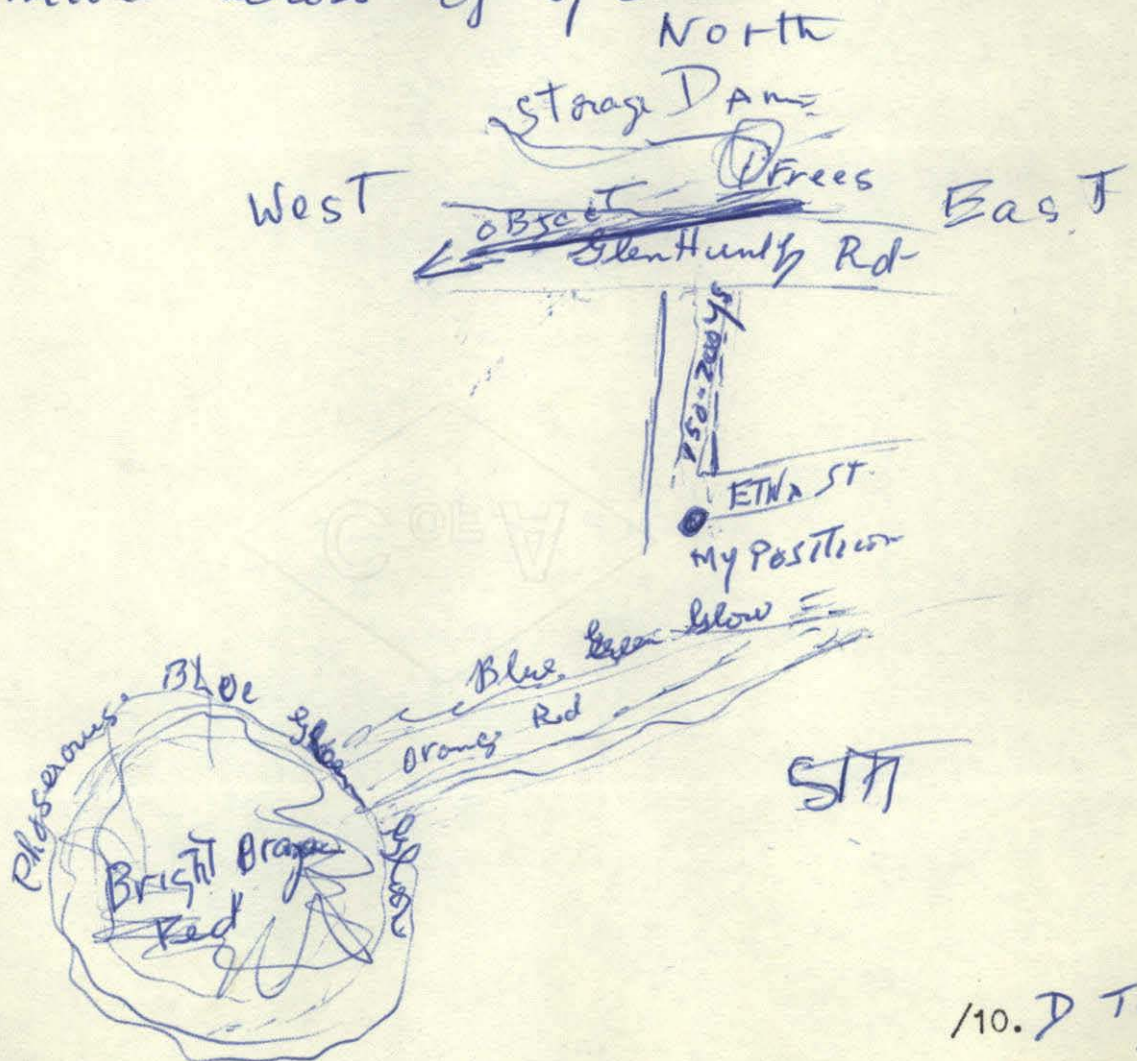 North
Storage Dam
Trees
West
East
OBJecT
GlenHuntly Rd
150-200 ys
ETNA ST.
My PosiTion
Blue Green Glow
Orange Red
Phosserous BLue Green Glow
STH
Bright Orange Red
C OF A
/10. D T